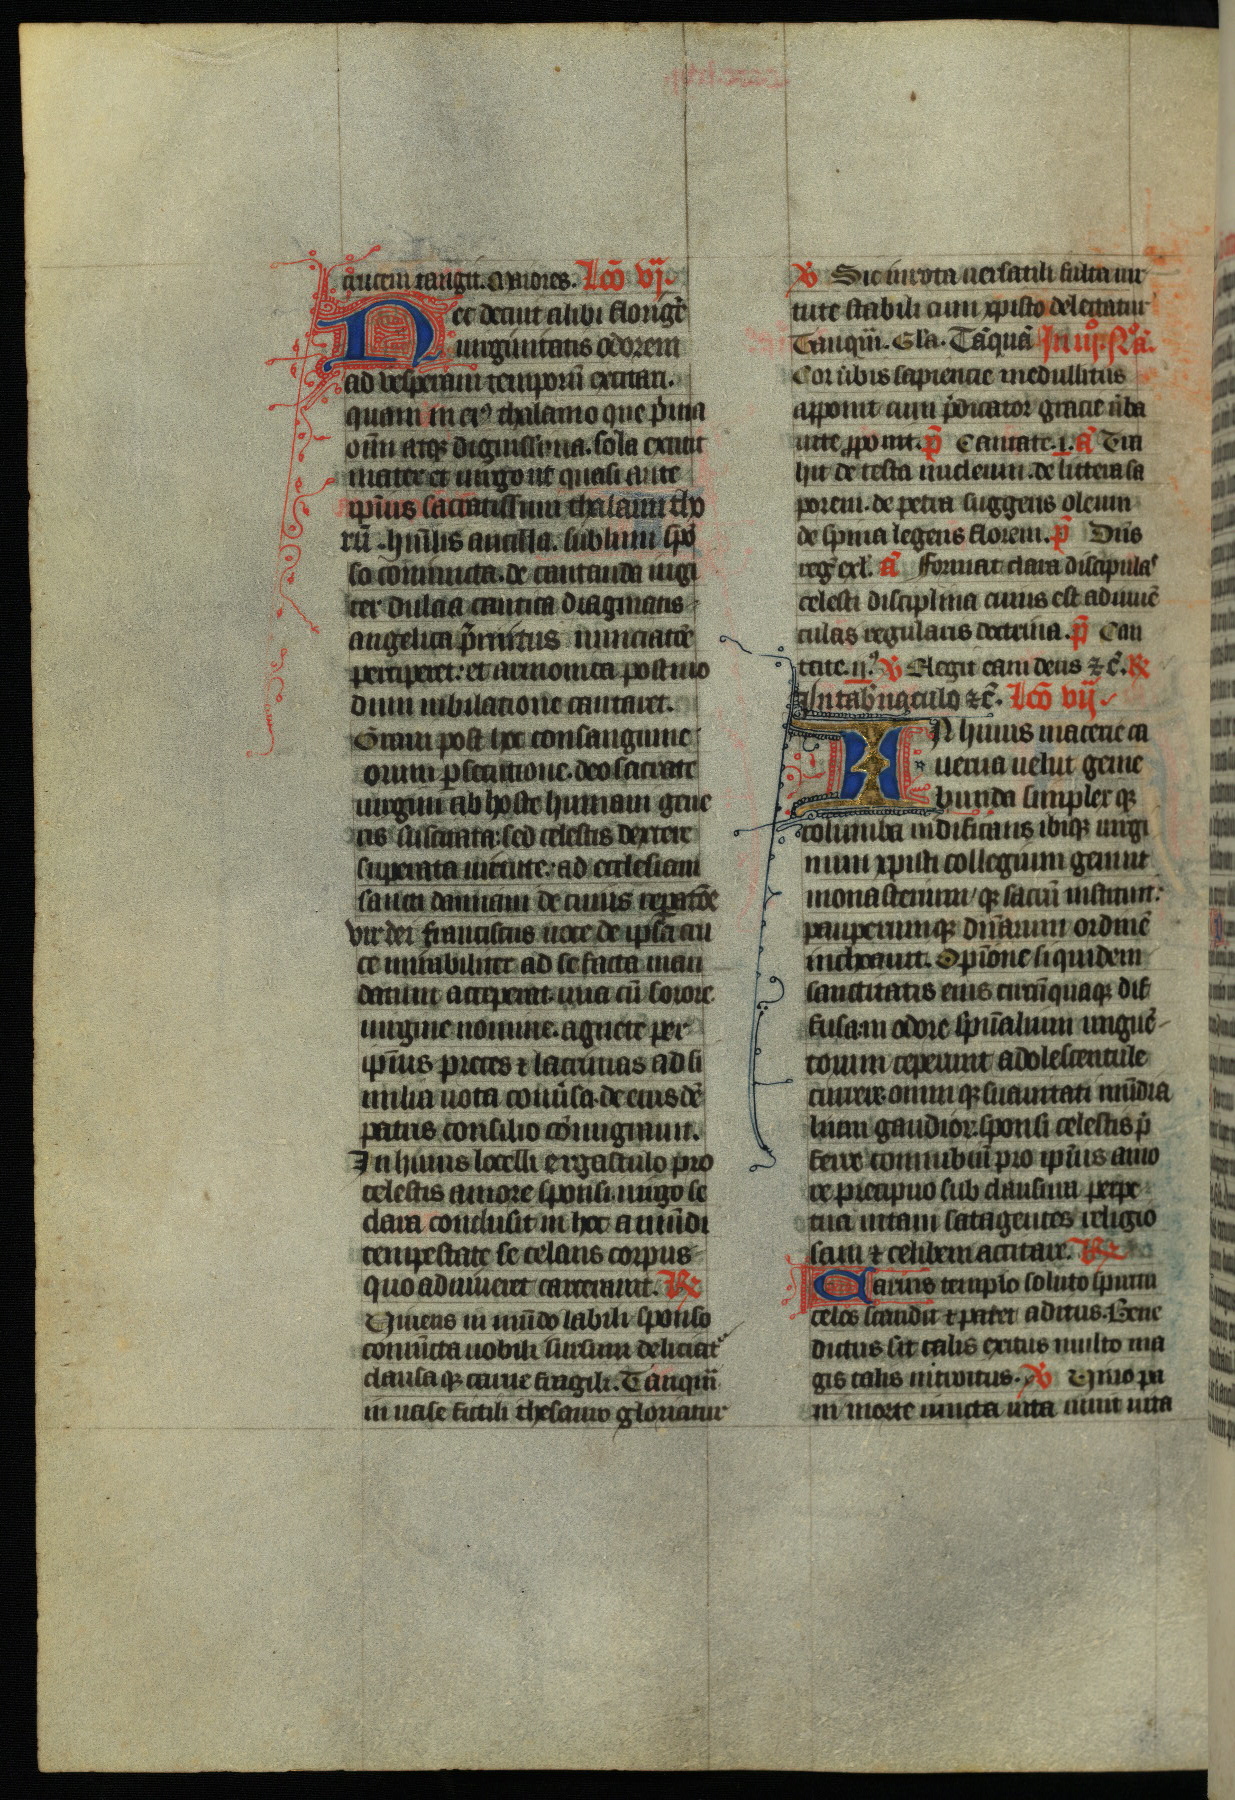 crucem tangit. Maiores. Lc̄o vi.
Nec decuit alibi florigẽ
uirginitatis odorem
ad vesperam temporū excitari.
quam in ei⁹ thalamo que p̃ma
oīm atq; dignissima. sola extitit
mater et uirgo ut quasi ante
ip̄ius sacratissimi thalami tho
rū. humilis ancilla. sublimi spō
so coniuncta. de cantanda iugi
ter dulcia cantica dragmatis
angelica p̃mitus nunciatõe
perciperet: et armonica postmo
dum iubilatione cantaret.
Etiam post hoc consanguine
orum ꝑsecutione. deo sacrate
uirgini ab hoste humani gene
ris suscitata: sed celestis dextere
superata uirtute: ad ecclesiam
sancti damiani de cuius reparatõe
vir dei franciscus uoce de ipsa cru
ce mirabiliter ad se facta man
datum acceperat. una cū sorore
uirgine nomine. agnete per
ip̄ius preces ⁊ lacrimas ad si
milia uota conũsa. de eius dẽ
patris consilio cōmigrauit.
In huius locelli ergastulo pro
celestis amore sponsi. uirgo se
clara conclusit in hoc a mūdi
tempestate se celans corpus
quo aduiueret carcerauit. R⁊
Viuens in mūdo labili sponso
coniūcta nobili sursum deliciat᷑
clausa q; carne fragili. Tanquā
in uase fictili thesauro gloriatur
V̄ Sic in rota uersatili fulta uir
tute stabili cum xp̄isto delectatur
Tanquā. Gl̄a. Tāquā In iiiº. Nº. ā.
Cor ũbis sapiencie medullitus
apponit cum p̃dicator gracie ũba
uite ꝓponit. p̄ Cantate. i. ā Tra
hit de testa nucleum. de littera sa
porem. de petra suggens oleum
de spina legens florem. p̄ Dn̄s
reg̃ exl̃. ā Format clara discipula᷑
celesti disciplina cuius est adiuuē
culas regularis doctrina. p̄ Can
tate. ii.º V̄ Elegit eam deus ⁊c̄. R⁊
In tab̃naculo ⁊c̄. Lc̄o vii
IN huius macerie ca
uerna uelut geme
bunda simplex q;
columba nidificans ibiq; uirgi
num xp̄isti collegium genuit
monasterium q; sacrū instituit:
pauperumq; dn̄arum ordinē
inchoauit. Opinione siquidem
sanctitatis eius circūquaq; dif
fusa. in odore sp̄ualium unguē
torum ceperunt adolescentule
currere. omni q; suauitati mūdia
lium gaudior. sponsi celestis p̃
ferre connubiū pro ip̄ius amo
re precipuo sub clausura perpe
tua uitam satagentes religio
sam ⁊ celibem actitare. R⁊
Carnis templo soluto spiritu
celos scandit ⁊ patet aditus. Bene
dictus sit talis exitus multo ma
gis talis introitus. V̄ Vnio pa
in morte iuncta uita uiuit uita